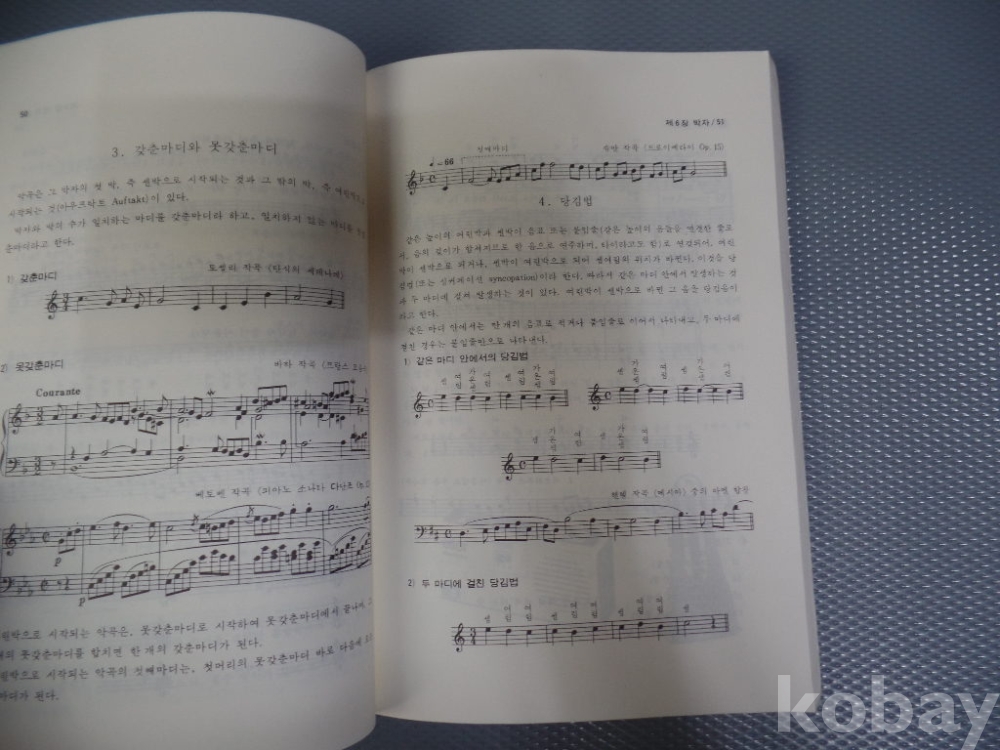 50
3. 갖춘마디와 못갖춘마디
악곡은 그 박자의 첫 박, 즉 센박으로 시작되는 것과 그 밖의 박, 즉 여린박으로
시작되는 것(아우프탁트 Auftakt)이 있다.
박자와 박의 수가 일치하는 마디를 갖춘마디라 하고, 일치하지 않는 마디를 못갖
춘마디라고 한다.
1) 갖춘마디
토셀리 작곡 〈탄식의 세레나데〉
2) 못갖춘마디
바하 작곡 〈프랑스
Courante
베토벤 작곡 〈피아노 소나타
p
p
린박으로 시작되는 악곡은, 못갖춘마디로 시작하여 못갖춘마디에서 끝나며, 그
못갖춘마디를 합치면 한 개의 갖춘마디가 된다.
린박으로 시작되는 악곡의 첫째마디는, 첫머리의 못갖춘마디 바로 다음에 오는
마디가 된다.
제6장 박자/51
♩=66
첫째마디
슈만 작곡 〈트로이메라이 Op. 15〉
4. 당김법
같은 높이의 여린박과 센박이 음표 또는 붙임줄(같은 높이의 음들을 연결한 줄로
서, 음의 길이가 합쳐지므로 한 음으로 연주하며, 타이라고도 함)로 연결되어, 여린
박이 센박으로 되거나, 센박이 여린박으로 되어 셈여림의 위치가 바뀐다. 이것을 당
김법(또는 싱커페이션 syncopation)이라 한다. 따라서 같은 마디 안에서 발생하는 것
과 두 마디에 걸쳐 발생하는 것이 있다. 여린박이 센박으로 바뀐 그 음을 당김음이
라고 한다.
같은 마디 안에서는 한 개의 음표로 적거나 붙임줄로 이어서 나타내고, 두 마디에
걸친 경우는 붙임줄만으로 나타낸다.
1) 같은 마디 안에서의 당김법
헨델 작곡 〈메시아〉 중의
2) 두 마디에 걸친 당김법
kobay